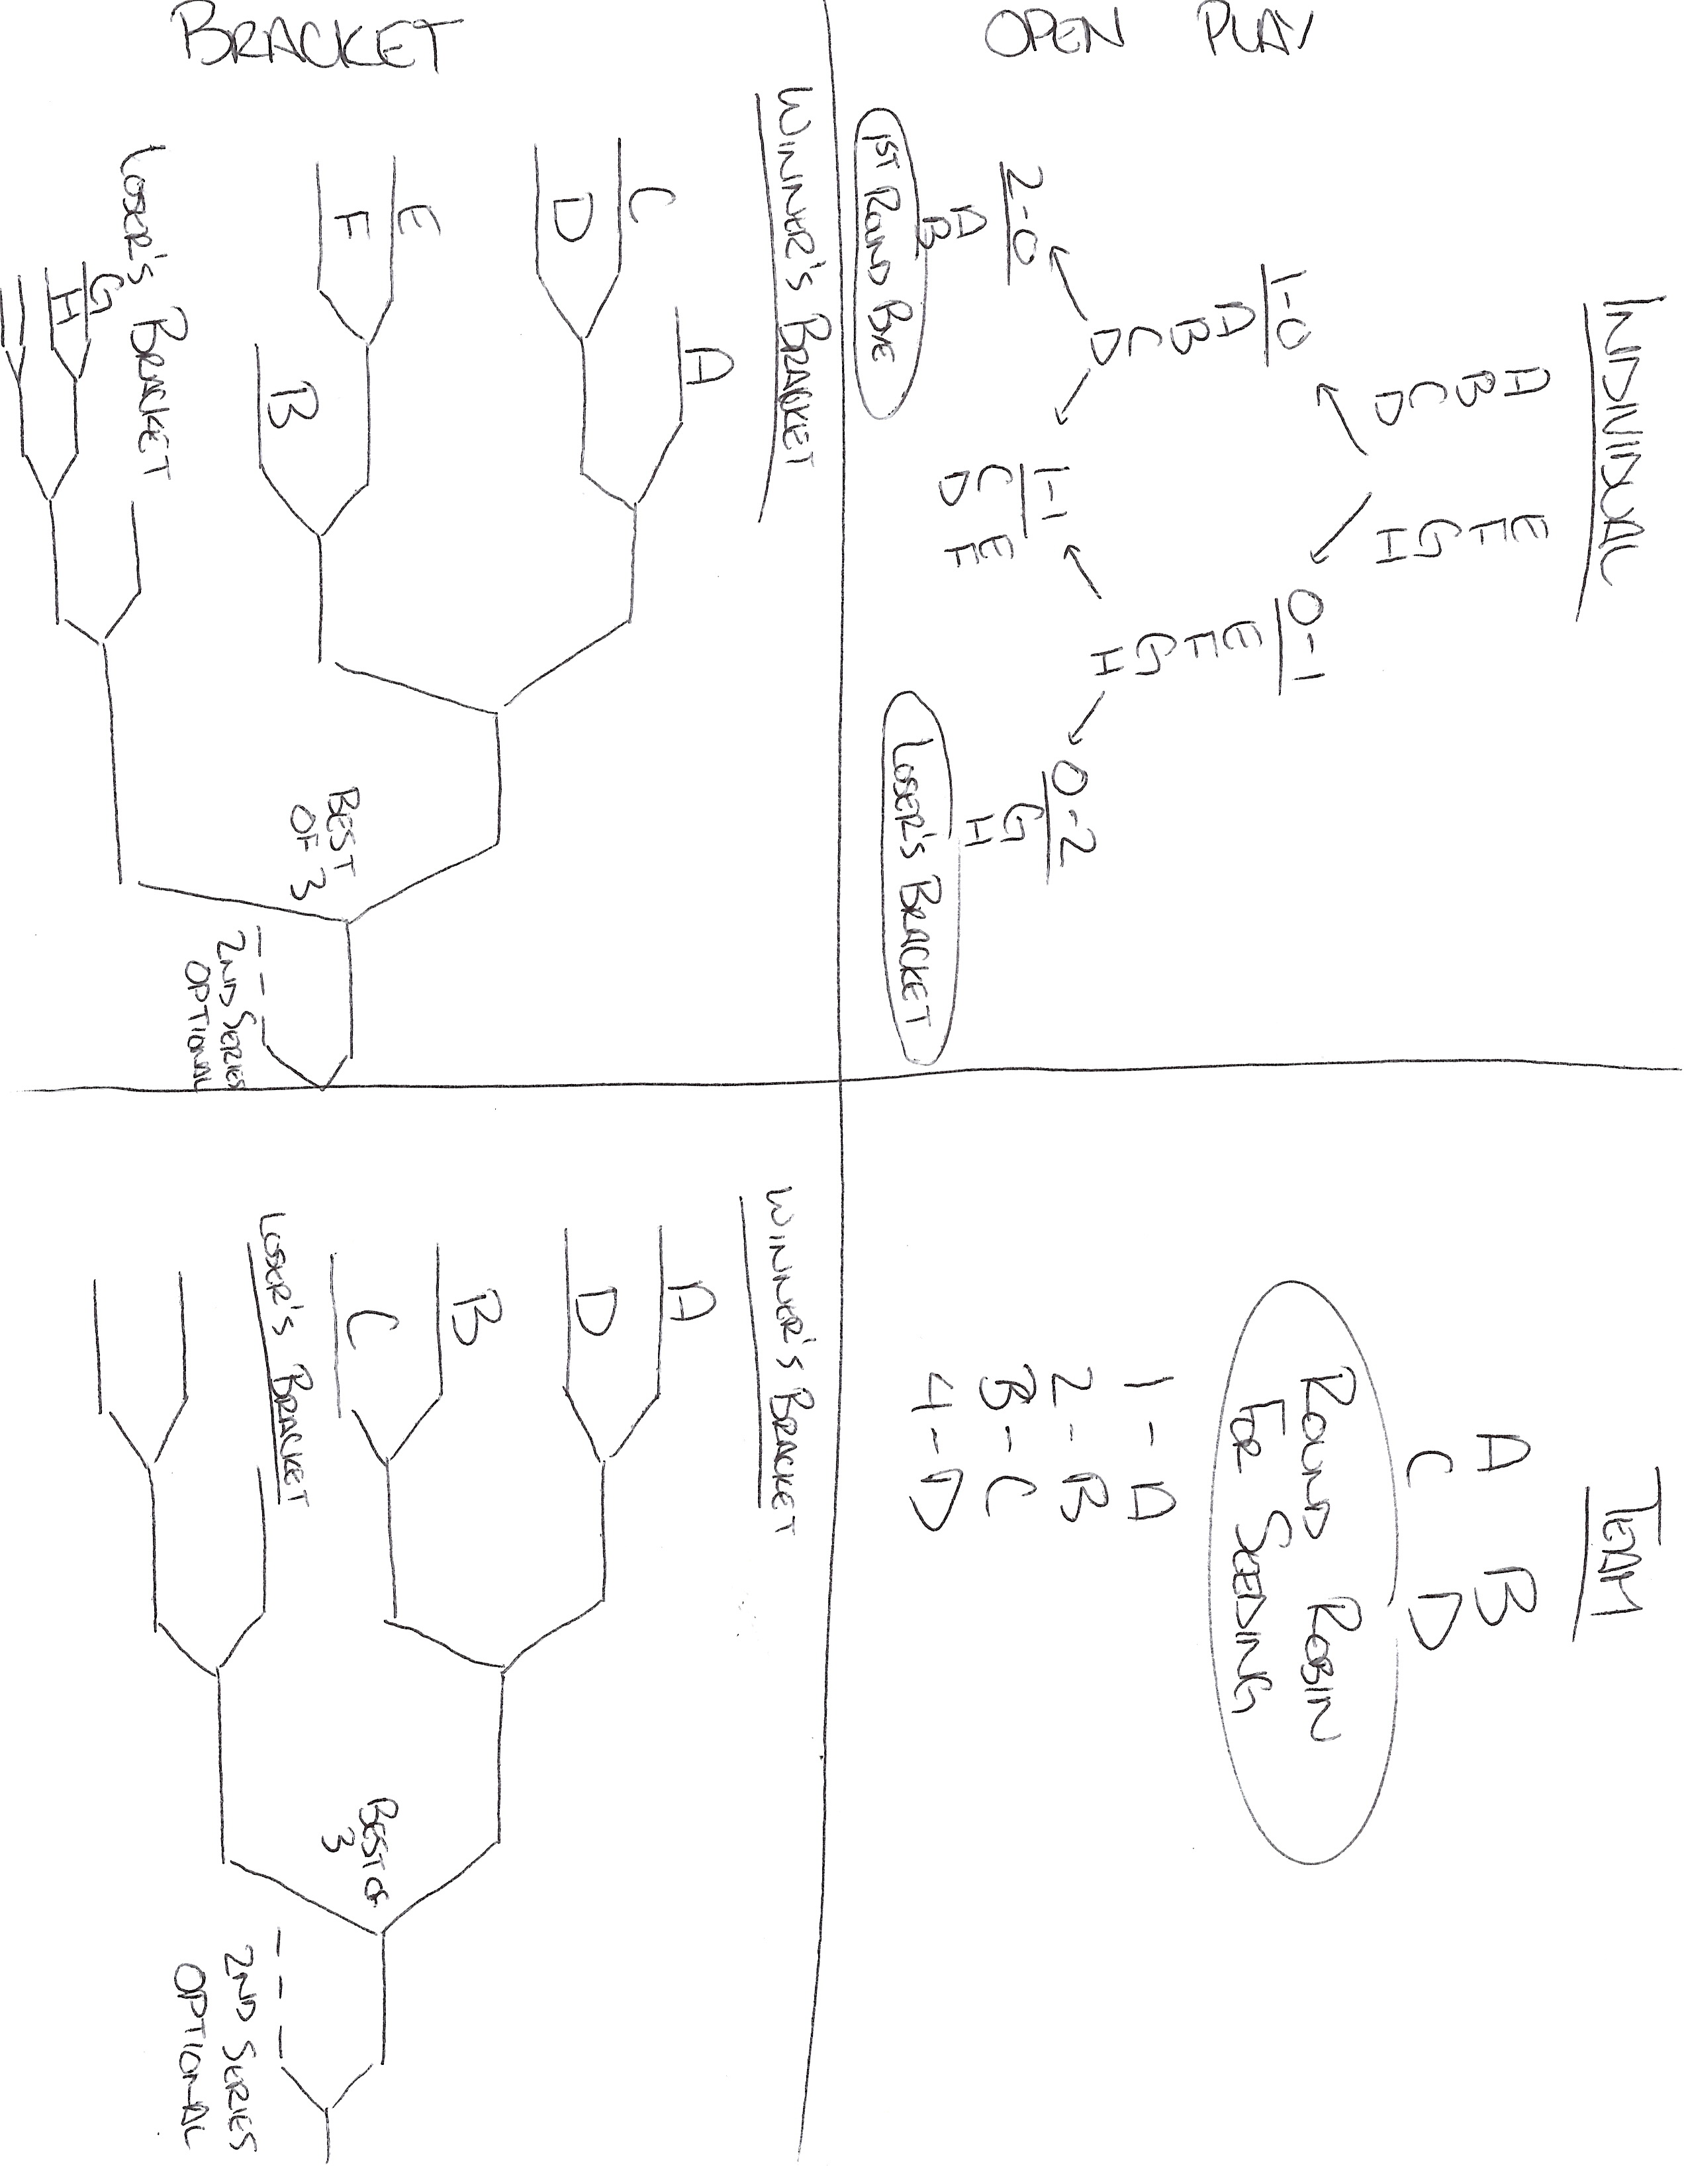 INDIVIDUAL
A E
B F
C G
D H
OPEN PLAY
1-0
A
B
C
D
0-1
E
F
G
H
2-0
A
B
1ST ROUND BYE
1-1
C E
D F
0-2
G
H
LOSER'S BRACKET
TEAM
A B
C D
ROUND ROBIN
FOR SEEDING
1 - A
2 - B
3 - C
4 - D
BRACKET
WINNER'S BRACKET
A
C
D
E
F
B
BEST
OF 3
2ND SERIES
OPTIONAL
LOSER'S BRACKET
G
H
WINNER'S BRACKET
A
D
B
C
BEST OF
3
LOSER'S BRACKET
2ND SERIES
OPTIONAL